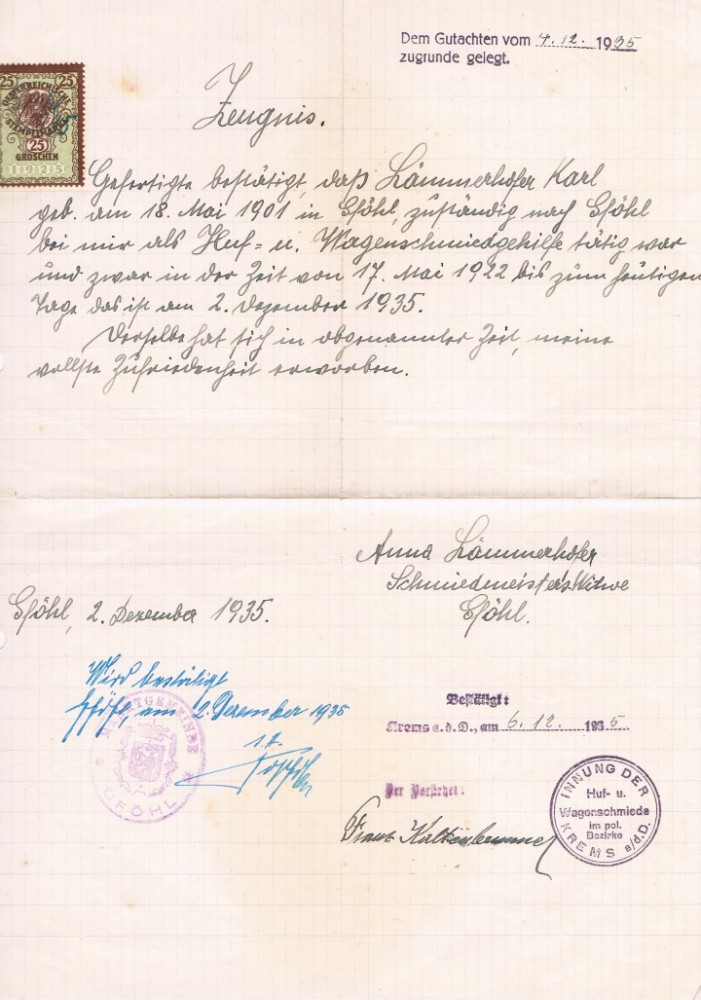 Dem Gutachten vom 4.12. 1935
zugrunde gelegt.
25 25
ÖSTERREICHISCHE
STEMPELMARKE
25
GROSCHEN
1925
Zeugnis.
Gefertigte bestätigt, daß Lämmerhofer Karl
geb. am 18. Mai 1901 in Gföhl, zuständig nach Gföhl
bei mir als Huf= u. Wagenschmiedgehilfe tätig war
und zwar in der Zeit von 17. Mai 1922 bis zum heutigen
Tage das ist am 2. Dezember 1935.
Derselbe hat sich in obgenannter Zeit, meine
vollste Zufriedenheit erworben.
Anna Lämmerhofer
Schmiedmeisters Witwe
Gföhl.
Gföhl, 2. Dezember 1935.
Wird bestätigt
Gföhl, am 2. Dezember 1935
MARKTGEMEINDE
GFÖHL
Bestätigt:
Krems a.d.D., am 6.12. 1935
Der Vorsteher:
Franz Kaltenbrunner
INNUNG DER
Huf- u.
Wagenschmiede
im pol.
Bezirke
KREMS a/d.D.